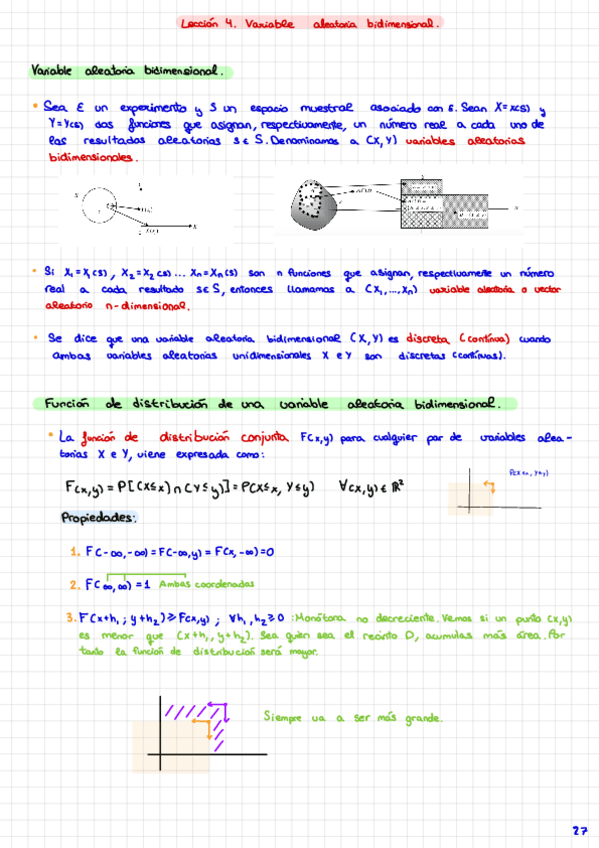 Lección 4. Variable aleatoria bidimensional.
Variable aleatoria bidimensional.
• Sea E un experimento y S un espacio muestral asociado con E. Sean X=X(S) y
Y=Y(S) dos funciones que asignan, respectivamente, un número real a cada uno de
los resultados aleatorios s∈S. Denominamos a (X,Y) variables aleatorias
bidimensionales.
• Si X₁=X₁(s), X₂=X₂(s)... Xn=Xn(s) son n funciones que asignan, respectivamente un número
real a cada resultado s∈S, entonces llamamos a (X₁,...,Xn) variable aleatoria o vector
aleatorio n-dimensional.
• Se dice que una variable aleatoria bidimensional (X,Y) es discreta (continua) cuando
ambas variables aleatorias unidimensionales X e Y son discretas (continuas).
Función de distribución de una variable aleatoria bidimensional.
• La función de distribución conjunta F(x,y) para cualquier par de variables alea-
torias X e Y, viene expresada como:
P(X≤x, Y≤y)
F(x,y) = P[(X≤x)∩(Y≤y)] = P(X≤x, Y≤y) ∀(x,y)∈ℝ²
Propiedades:
1. F(-∞,-∞)=F(-∞,y)=F(x,-∞)=0
2. F(∞,∞)=1 Ambas coordenadas
3. F(x+h₁; y+h₂)≥F(x,y); ∀h₁,h₂≥0 : Monótona no decreciente. Vemos si un punto (x,y)
es menor que (x+h₁, y+h₂). Sea quien sea el recinto D, acumulas más área. Por
tanto la función de distribución será mayor.
Siempre va a ser más grande.
27